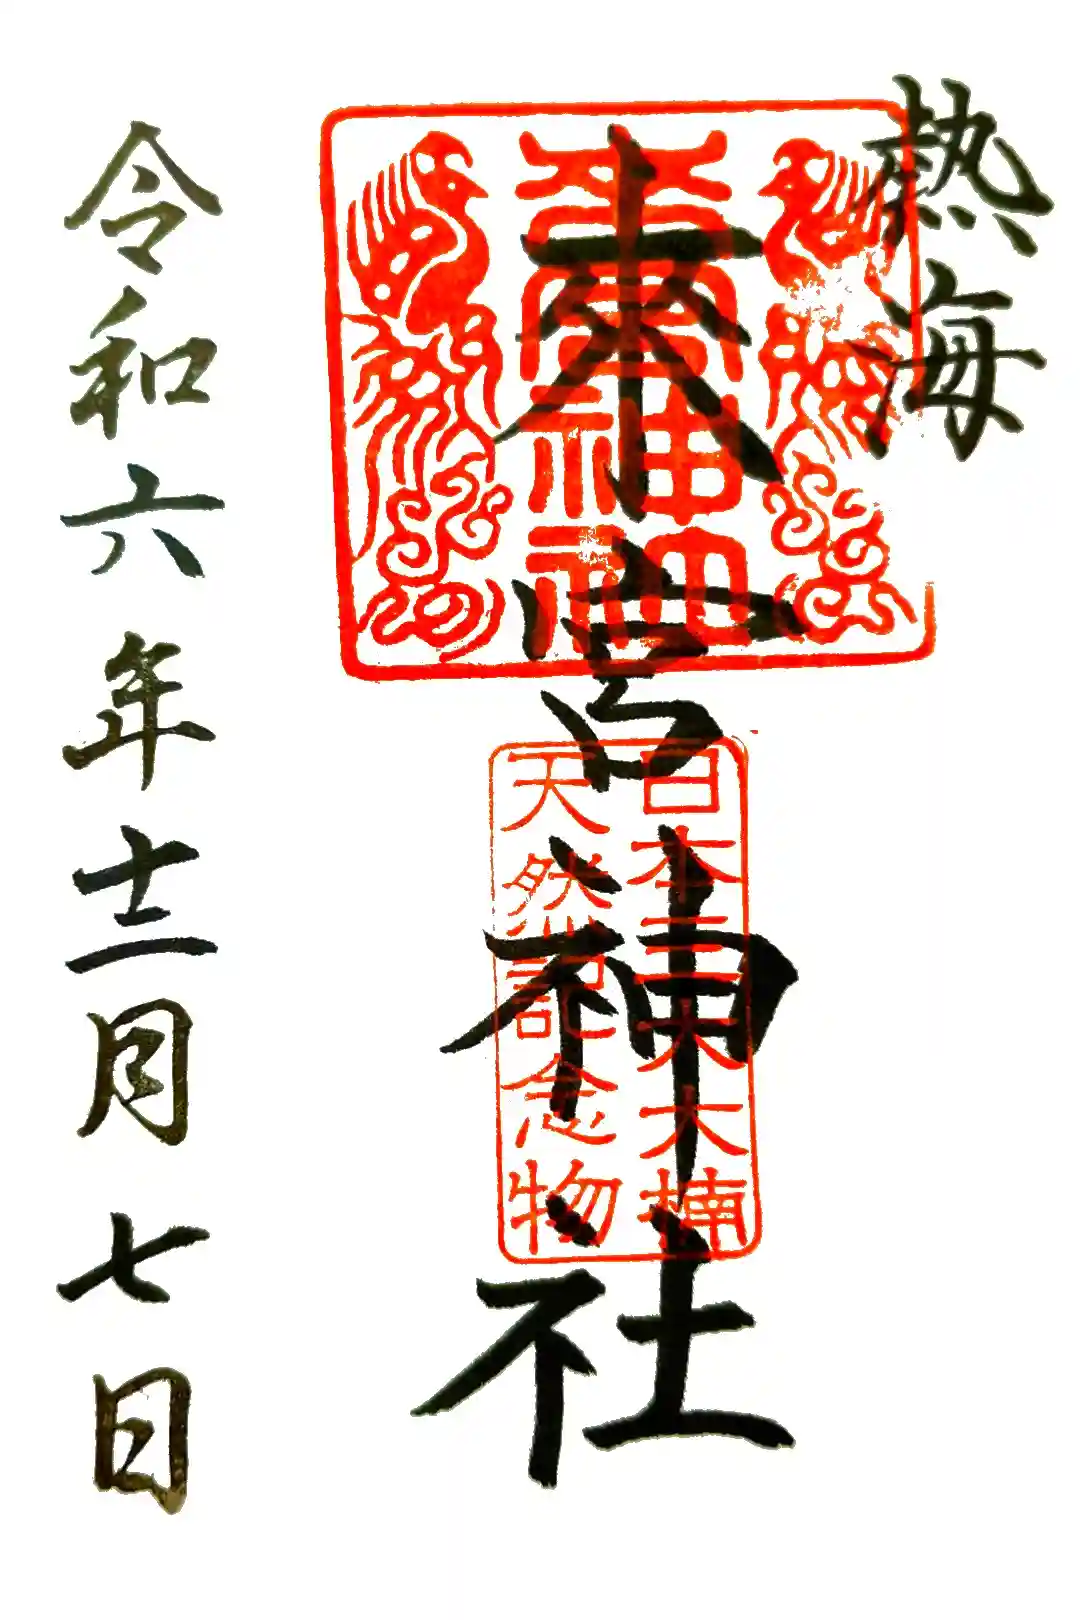 熱海
來宮神社
來宮神社
日本三大大楠
天然記念物
令和六年十二月七日